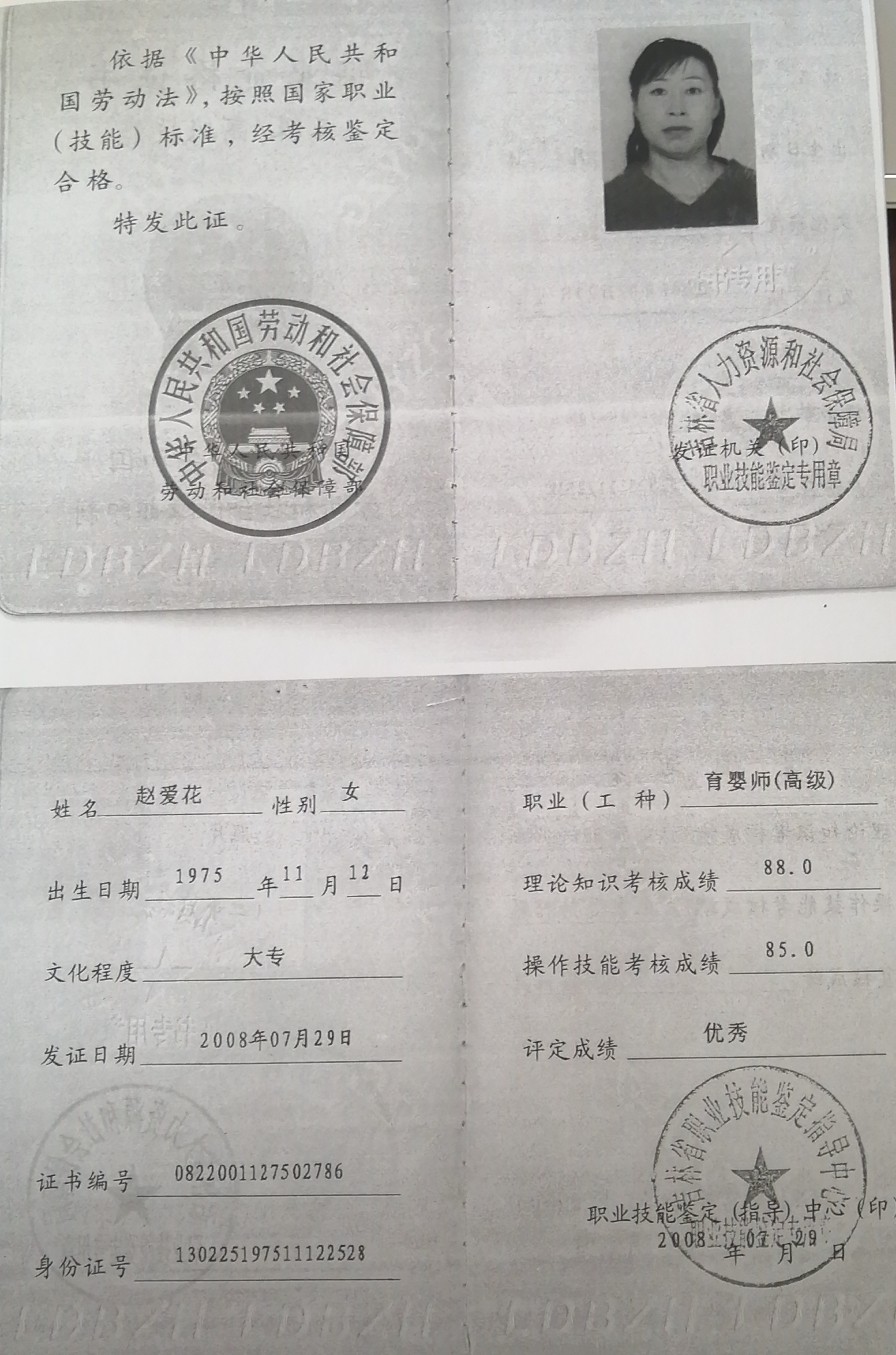 依据《中华人民共和
国劳动法》，按照国家职业
（技能）标准，经考核鉴定
合格。
特发此证。
中华人民共和国劳动和社会保障部
中华人民共和国
劳动和社会保障部
吉林省人力资源和社会保障局
发证机关（印）
职业技能鉴定专用章
LDBZH LDBZH LDBZH LDBZH
姓名 赵爱花 性别 女
出生日期 1975 年 11 月 12 日
文化程度 大专
发证日期 2008年07月29日
证书编号 0822001127502786
身份证号 130225197511122528
职业（工 种） 育婴师(高级)
理论知识考核成绩 88.0
操作技能考核成绩 85.0
评定成绩 优秀
吉林省职业技能鉴定指导中心
职业技能鉴定（指导）中心（印）
2008 07 29
年 月 日
LDBZH LDBZH LDBZH LDBZH